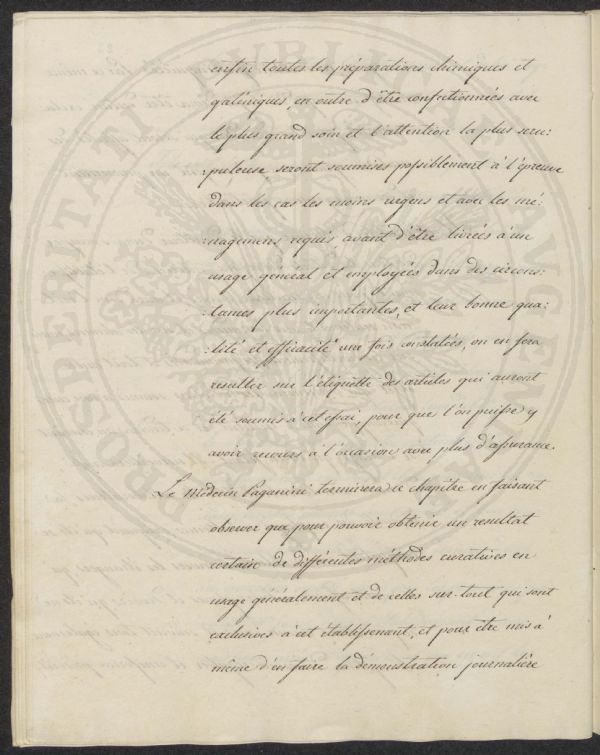 enfin toutes les préparations chimiques et
galéniques, en outre d'être confectionnées avec
le plus grand soin et l'attention la plus scru:
:puleuse seront soumises possiblement à l'épreuve
dans les cas les moins urgens et avec les mé:
:nagemens requis avant d'être livrées à un
usage général et employées dans des circons:
:tances plus importantes, et leur bonne qua:
:lité et efficacité une fois constatées, on en fera
resulter sur l'étiquette des articles qui auront
été soumis à cet essai, pour que l'on puisse y
avoir recours à l'occasion avec plus d'assurance.
Le Médecin Paganini terminera ce chapitre en faisant
observer que pour pouvoir obtenir un resultat
certain de différentes méthodes curatives en
usage généralement et de celles sur-tout qui sont
exclusives à cet établissement, et pour être mis à
même d'en faire la démonstration journalière
PROSPERITATI PUBLICAE AUGENDAE